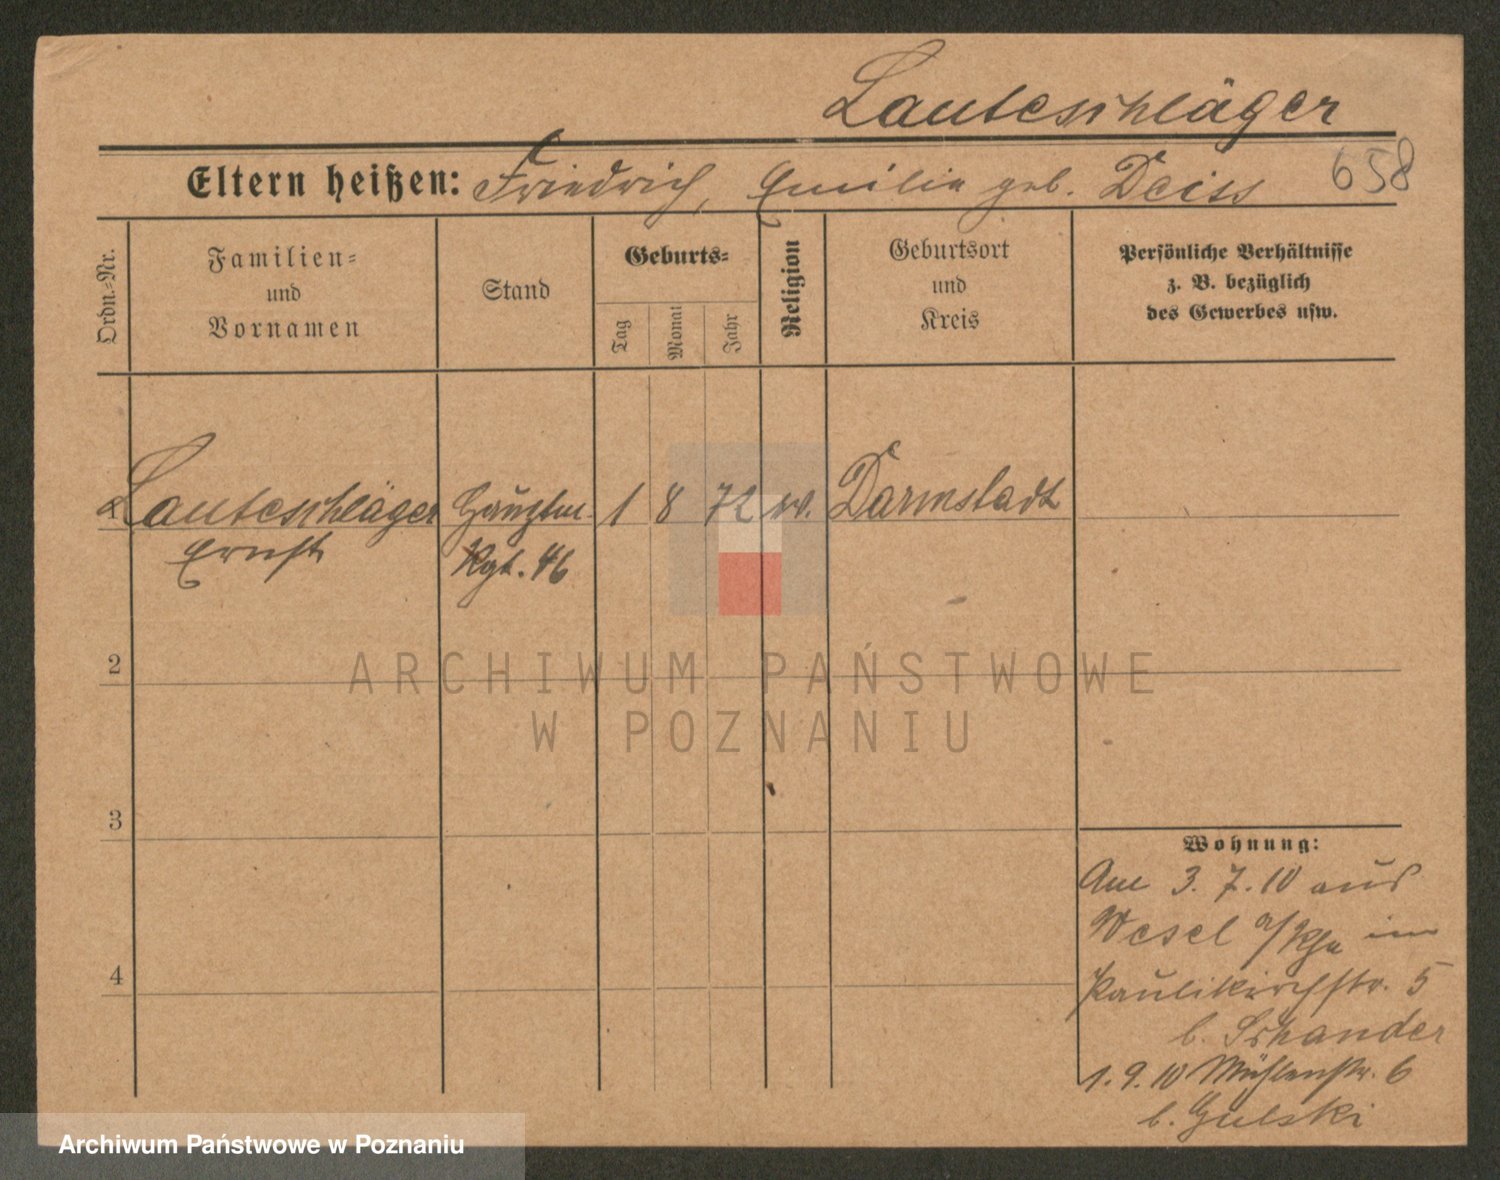 Lauteschläger
Eltern heißen: Friedrich, Emilie geb. Deiss 658
Ordn.-Nr.
Familien-
und
Vornamen
Stand
Geburts-
Tag
Monat
Jahr
Religion
Geburtsort
und
Kreis
Persönliche Verhältnisse
z. B. bezüglich
des Gewerbes usw.
Lauteschläger Hauptm. 1 8 72 ev. Darmstadt
Ernst Rgt. 46
2
ARCHIWUM PAŃSTWOWE
W POZNANIU
3
Wohnung:
Am 3. 7. 10 aus
Wesel a/Rh. in
4
Paulikirchstr. 5
b. Schander
1. 9. 10 Mühlenstr. 6
b. Gulski
Archiwum Państwowe w Poznaniu